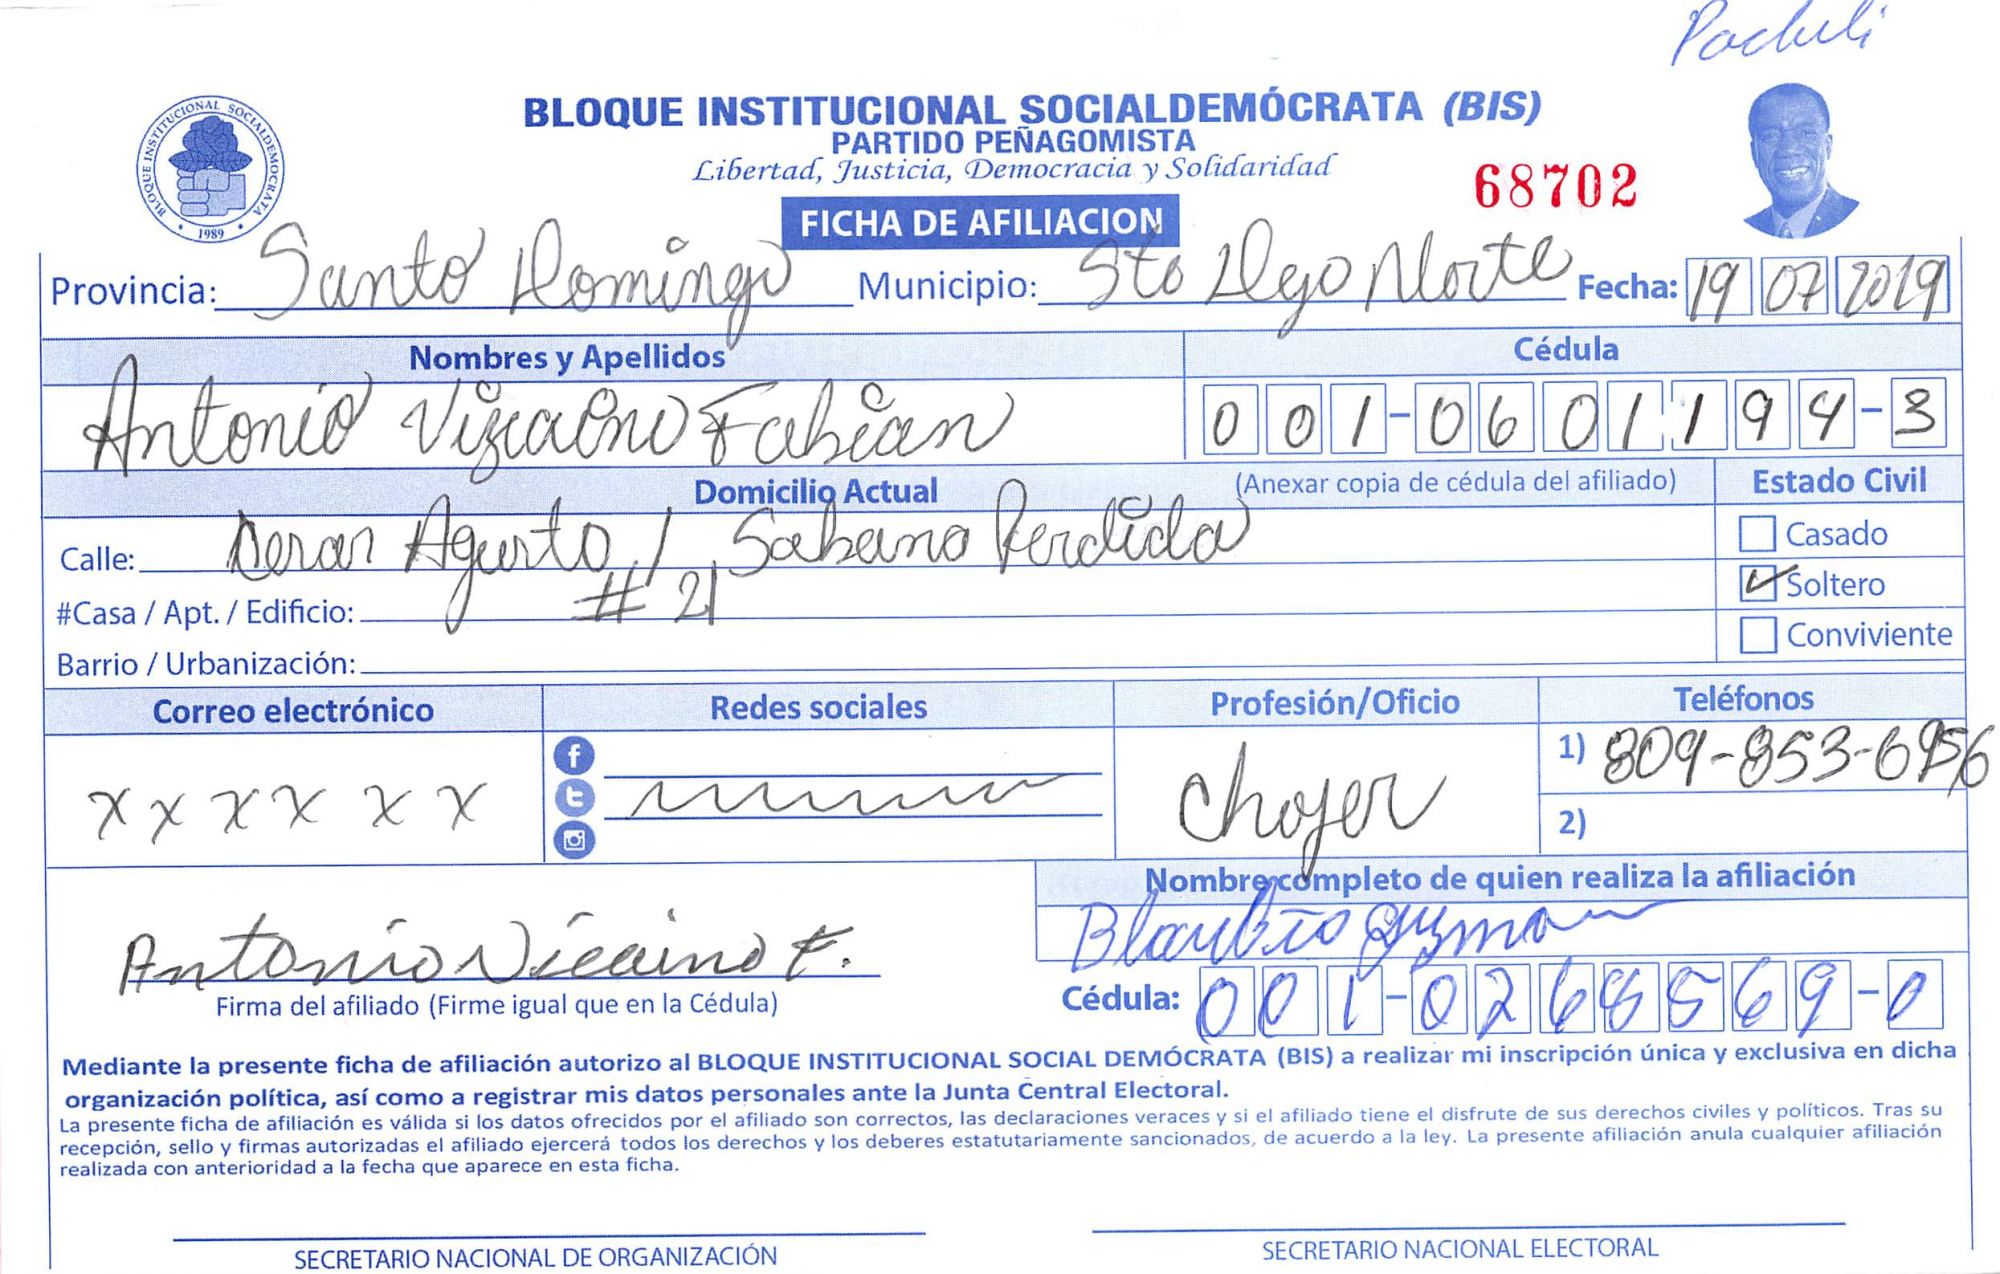 BLOQUE INSTITUCIONAL SOCIALDEMÓCRATA (BIS)
PARTIDO PEÑAGOMISTA
Libertad, Justicia, Democracia y Solidaridad
68702
BLOQUE INSTITUCIONAL SOCIALDEMOCRATA
1989
FICHA DE AFILIACION
Provincia: Santo Domingo Municipio: Sto Dgo Norte Fecha: 19 07 2019
Nombres y Apellidos Cédula
Antonio Vizcaino Fabian 001-0601194-3
Domicilio Actual (Anexar copia de cédula del afiliado) Estado Civil
Calle: / Sabana Perdida Casado
#Casa / Apt. / Edificio: # 21 Soltero
Barrio / Urbanización: Conviviente
Correo electrónico Redes sociales Profesión/Oficio Teléfonos
x x x x x x Chofer 1) 809-853-
2)
Nombre completo de quien realiza la afiliación
Guzman
Antonio Vicaino F.
Firma del afiliado (Firme igual que en la Cédula)
Cédula: 001-0268569-0
Mediante la presente ficha de afiliación autorizo al BLOQUE INSTITUCIONAL SOCIAL DEMÓCRATA (BIS) a realizar mi inscripción única y exclusiva en dicha
organización política, así como a registrar mis datos personales ante la Junta Central Electoral.
La presente ficha de afiliación es válida si los datos ofrecidos por el afiliado son correctos, las declaraciones veraces y si el afiliado tiene el disfrute de sus derechos civiles y políticos. Tras su
recepción, sello y firmas autorizadas el afiliado ejercerá todos los derechos y los deberes estatutariamente sancionados, de acuerdo a la ley. La presente afiliación anula cualquier afiliación
realizada con anterioridad a la fecha que aparece en esta ficha.
SECRETARIO NACIONAL DE ORGANIZACIÓN SECRETARIO NACIONAL ELECTORAL